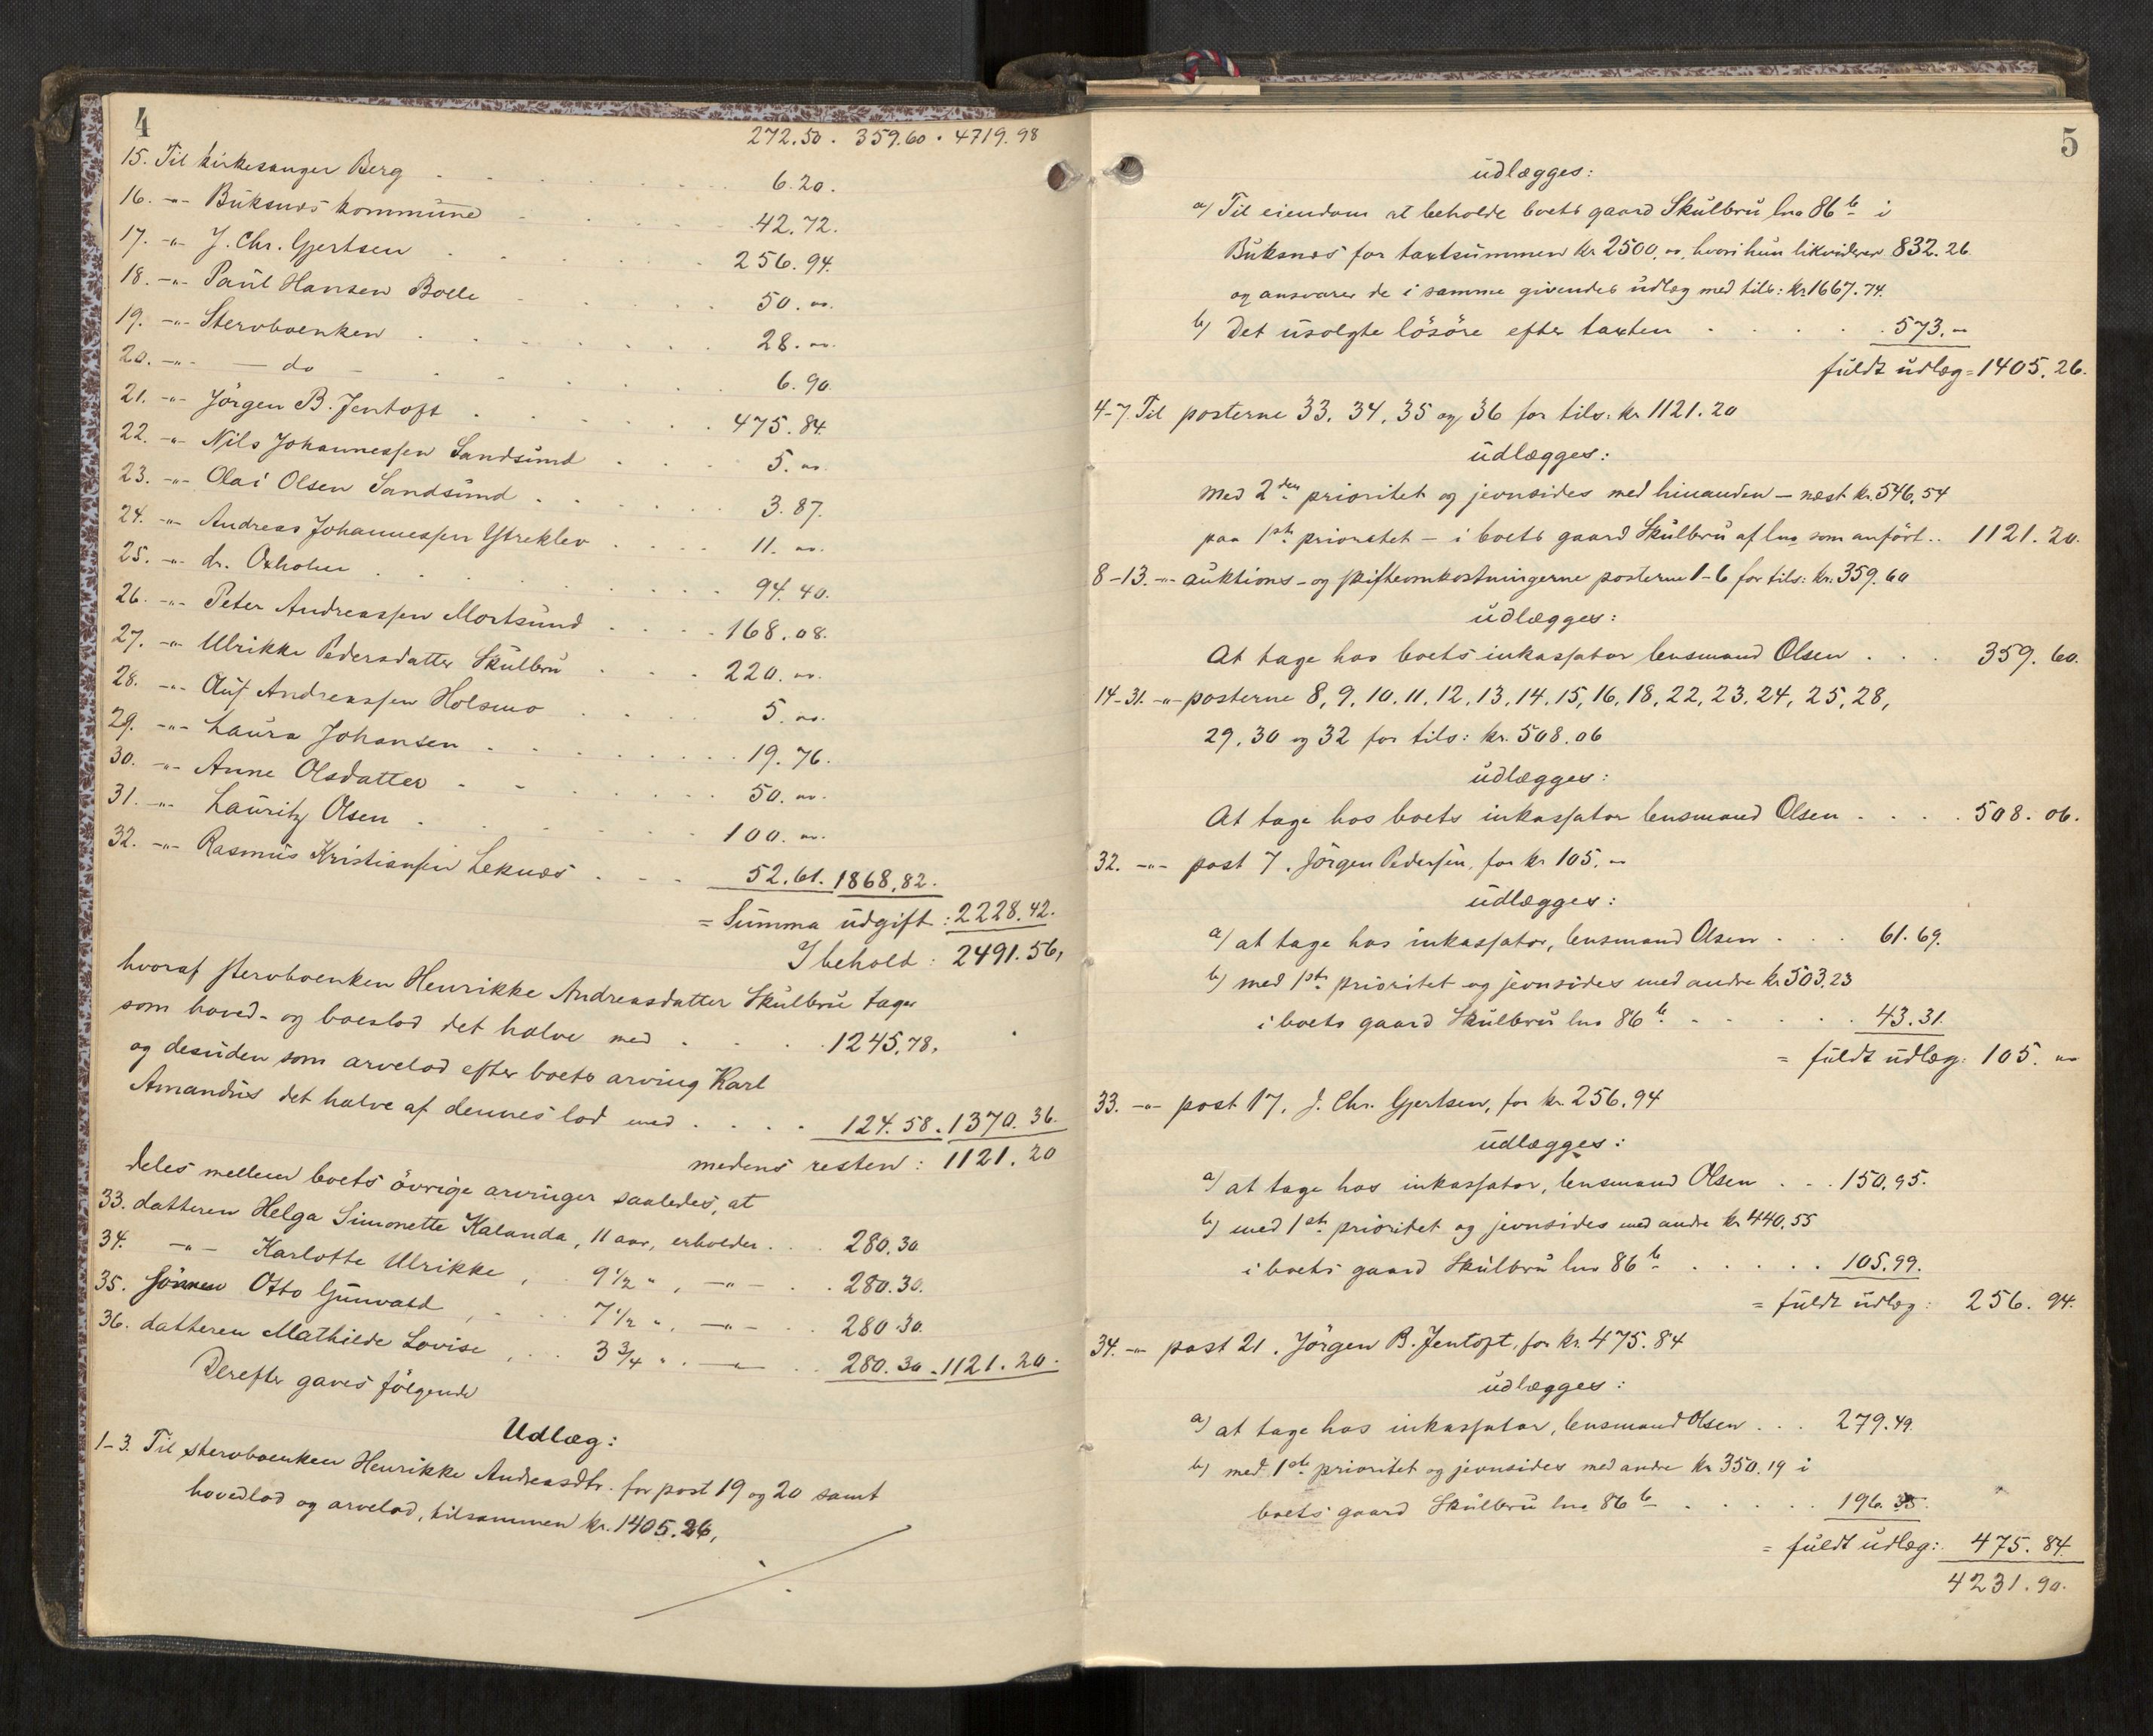 4
272.50. 359.60. 4719.98
15. Til kirkesanger Berg . . . 6.20.
16. -"- Buksnes kommune . . . 42.72.
17. -"- J. Chr. Gjertsen . . . 256.94.
18. -"- Paul Hansen Bolle . . . 50. "".
19. -"- Stervboenken . . . 28. "".
20. -"- — do — . . . 6.90
21. -"- Jörgen B. Jentoft . . . 475.84.
22. -"- Nils Johannessen Sandsund . . . 5. "".
23. -"- Olai Olsen Sandsund . . . 3.87.
24. -"- Andreas Johannessen Ytreklev . . . 11. "".
25. -"- dr. Oxholm . . . 94.40.
26. -"- Peter Andreassen Mortsund . . . 168.08.
27. -"- Ulrikke Pedersdatter Skulbru . . . 220. "".
28. -"- Oluf Andreassen Holsmo . . . 5. "".
29. -"- Laura Johansen . . . 19.76.
30. -"- Anne Olsdatter . . . 50. "".
31. -"- Lauritz Olsen . . . 100. "".
32. -"- Rasmus Kristiansen Leknes . . . 52.61. 1868,82.
= Summa udgift : 2228.42.
I behold : 2491.56,
hvoraf stervboenken Henrikke Andreasdatter Skulbru tager
som hoved- og boeslod det halve med . . . 1245,78,
og desuden som arvelod efter boets arving Karl
Amandus det halve af dennes lod med . . . 124.58. 1370.36.
medens resten : 1121.20
deles mellem boets övrige arvinger saaledes, at
33. datteren Helga Simonette Kalanda, 11 aar, erholder . . 280.30.
34. -"- Karlotte Ulrikke, . . 9 1/2 ", -"- . . 280.30.
35. sönnen Otto Gunvald, . . 7 1/2 ", -"- . . 280.30.
36. datteren Mathilde Lovise, . . 3 3/4 ", -"- . . 280.30. 1121.20.
Derefter gaves fölgende
Udlæg:
1-3. Til stervboenken Henrikke Andreasdtr. for post 19 og 20 samt
hovedlod og arvelod, tilsammen kr. 1405.26,
5
udlægges:
a) Til eiendom at beholde boets gaard Skulbru lno 86 b i
Buksnes for taxtsummen kr 2500, "", hvori hun likviderer 832.26
og ansvarer de i samme givendes udlæg med tils: kr 1667.74.
b) Det usolgte lösöre efter taxten . . . 573. -
fuldt udlæg = 1405.26.
4-7. Til posterne 33, 34, 35 og 36 for tils: kr 1121.20
udlægges:
Med 2den prioritet og jevnsides med hinanden — næst kr. 546,54
paa 1ste prioritet — i boets gaard Skulbru af lno som anfört . . 1121.20.
8-13. -"- auktions- og skifteomkostningerne posterne 1-6 for tils: kr. 359.60
udlægges:
At tage hos boets inkassator lensmand Olsen . . . 359.60.
14-31. -"- posterne 8, 9, 10, 11, 12, 13, 14, 15, 16, 18, 22, 23, 24, 25, 28,
29, 30 og 32 for tils: kr. 508.06
udlægges:
At tage hos boets inkassator lensmand Olsen . . . 508.06.
32. -"- post 7. Jörgen Pedersen, for kr 105. "
udlægges:
a) at tage hos inkassator, lensmand Olsen . . . 61.69.
b) med 1ste prioritet og jevnsides med andre kr 503,23
i boets gaard Skulbru lno 86 b . . . 43.31.
= fuldt udlæg: 105. ""
33. -"- post 17, J. Chr. Gjertsen, for kr. 256.94
udlægges:
a) at tage hos inkassator, lensmand Olsen . . . 150.95.
b) med 1ste prioritet og jevnsides med andre kr 440.55
i boets gaard Skulbru lno 86 b . . . 105.99.
= fuldt udlæg: 256.94.
34. -"- post 21. Jörgen B. Jentoft, for kr. 475.84
udlægges:
a) at tage hos inkassator, lensmand Olsen . . . 279.49.
b) med 1ste prioritet og jevnsides med andre kr 350.19 i
boets gaard Skulbru lno 86 b . . . 196.35.
= fuldt udlæg: 475.84.
4231.90.